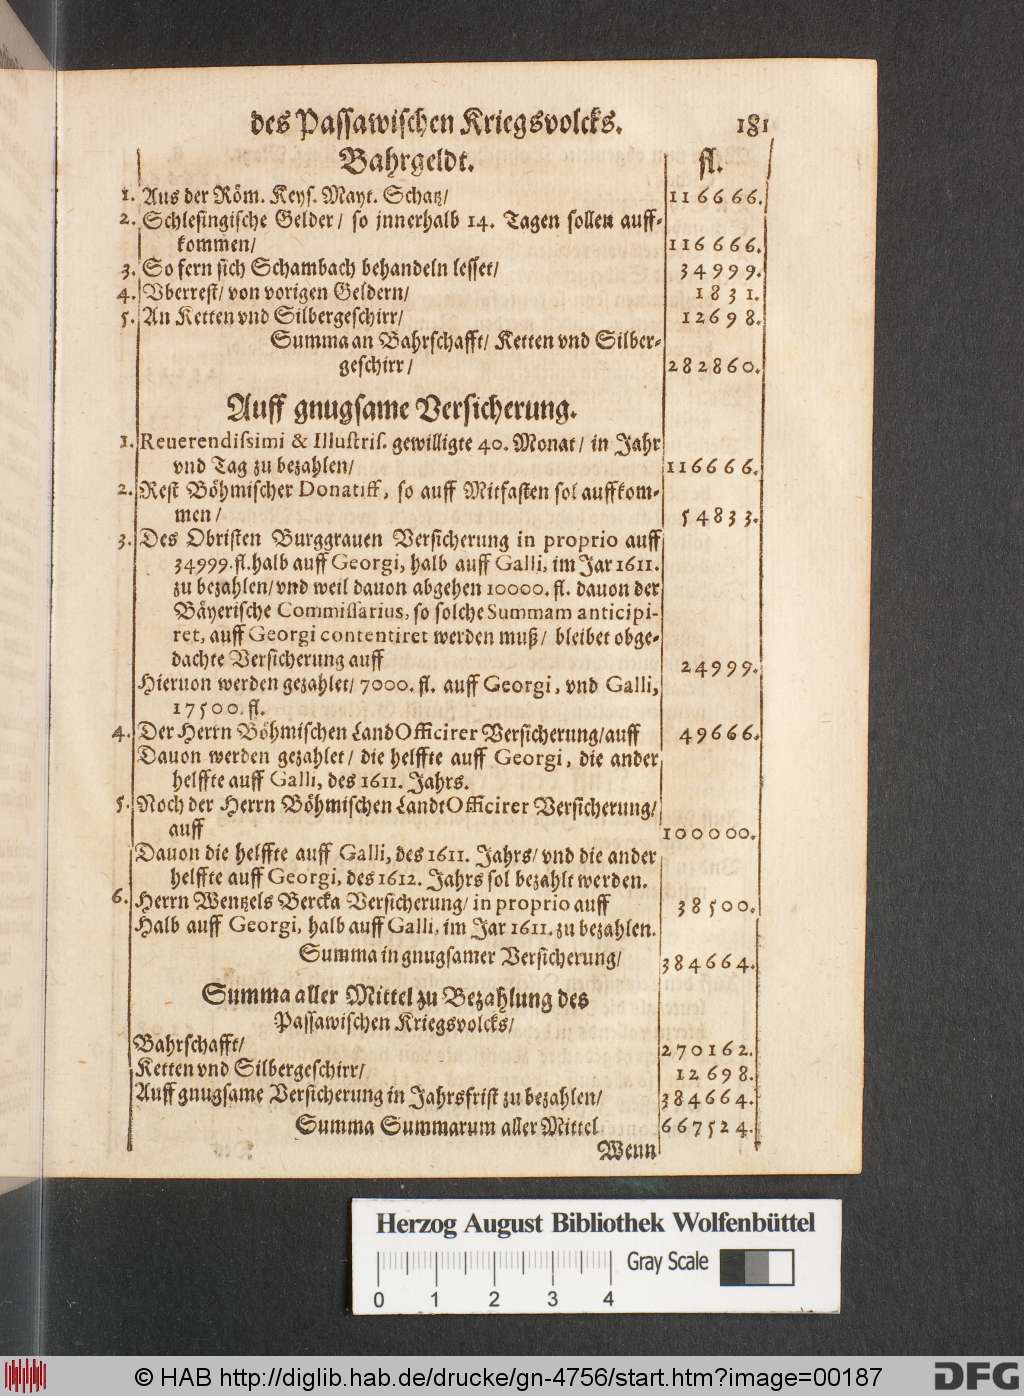 des Passawischen Kriegsvolcks. 181
Bahrgeldt. fl.
1. Aus der Röm. Keys. Mayt. Schatz/ 116666.
2. Schlesingische Gelder/ so jnnerhalb 14. Tagen sollen auff-
kommen/ 116666.
3. So fern sich Schambach behandeln lesset/ 34999.
4. Vberrest/ von vorigen Geldern/ 1831.
5. An Ketten vnd Silbergeschirr/ 12698.
Summa an Bahrschafft/ Ketten vnd Silber-
geschirr/ 282860.
Auff gnugsame Versicherung.
1. Reuerendissimi & Illustris. gewilligte 40. Monat/ in Jahr
vnd Tag zu bezahlen/ 116666.
2. Rest Böhmischer Donatiff, so auff Mitfasten sol auffkom-
men/ 54833.
3. Des Obristen Burggrauen Versicherung in proprio auff
34999. fl. halb auff Georgi, halb auff Galli, im Jar 1611.
zu bezahlen/ vnd weil dauon abgehen 10000. fl. dauon der
Bäyerische Commissarius, so solche Summam anticipi-
ret, auff Georgi contentiret werden muß/ bleibet obge-
dachte Versicherung auff 24999.
Hieruon werden gezahlet/ 7000. fl. auff Georgi, vnd Galli,
17500. fl.
4. Der Herrn Böhmischen LandOfficirer Versicherung/ auff 49666.
Dauon werden gezahlet/ die helffte auff Georgi, die ander
helffte auff Galli, des 1611. Jahrs.
5. Noch der Herrn Böhmischen LandtOfficirer Versicherung/
auff 100000.
Dauon die helffte auff Galli, des 1611. Jahrs/ vnd die ander
helffte auff Georgi, des 1612. Jahrs sol bezahlt werden.
6. Herrn Wentzels Bercka Versicherung/ in proprio auff 38500.
Halb auff Georgi, halb auff Galli, im Jar 1611. zu bezahlen.
Summa in gnugsamer Versicherung/ 384664.
Summa aller Mittel zu Bezahlung des
Passawischen Kriegsvolcks/
Bahrschafft/ 270162.
Ketten vnd Silbergeschirr/ 12698.
Auff gnugsame Versicherung in Jahrsfrist zu bezahlen/ 384664.
Summa Summarum aller Mittel 667524.
Wenn
Herzog August Bibliothek Wolfenbüttel
Gray Scale
0 1 2 3 4
© HAB http://diglib.hab.de/drucke/gn-4756/start.htm?image=00187
DFG